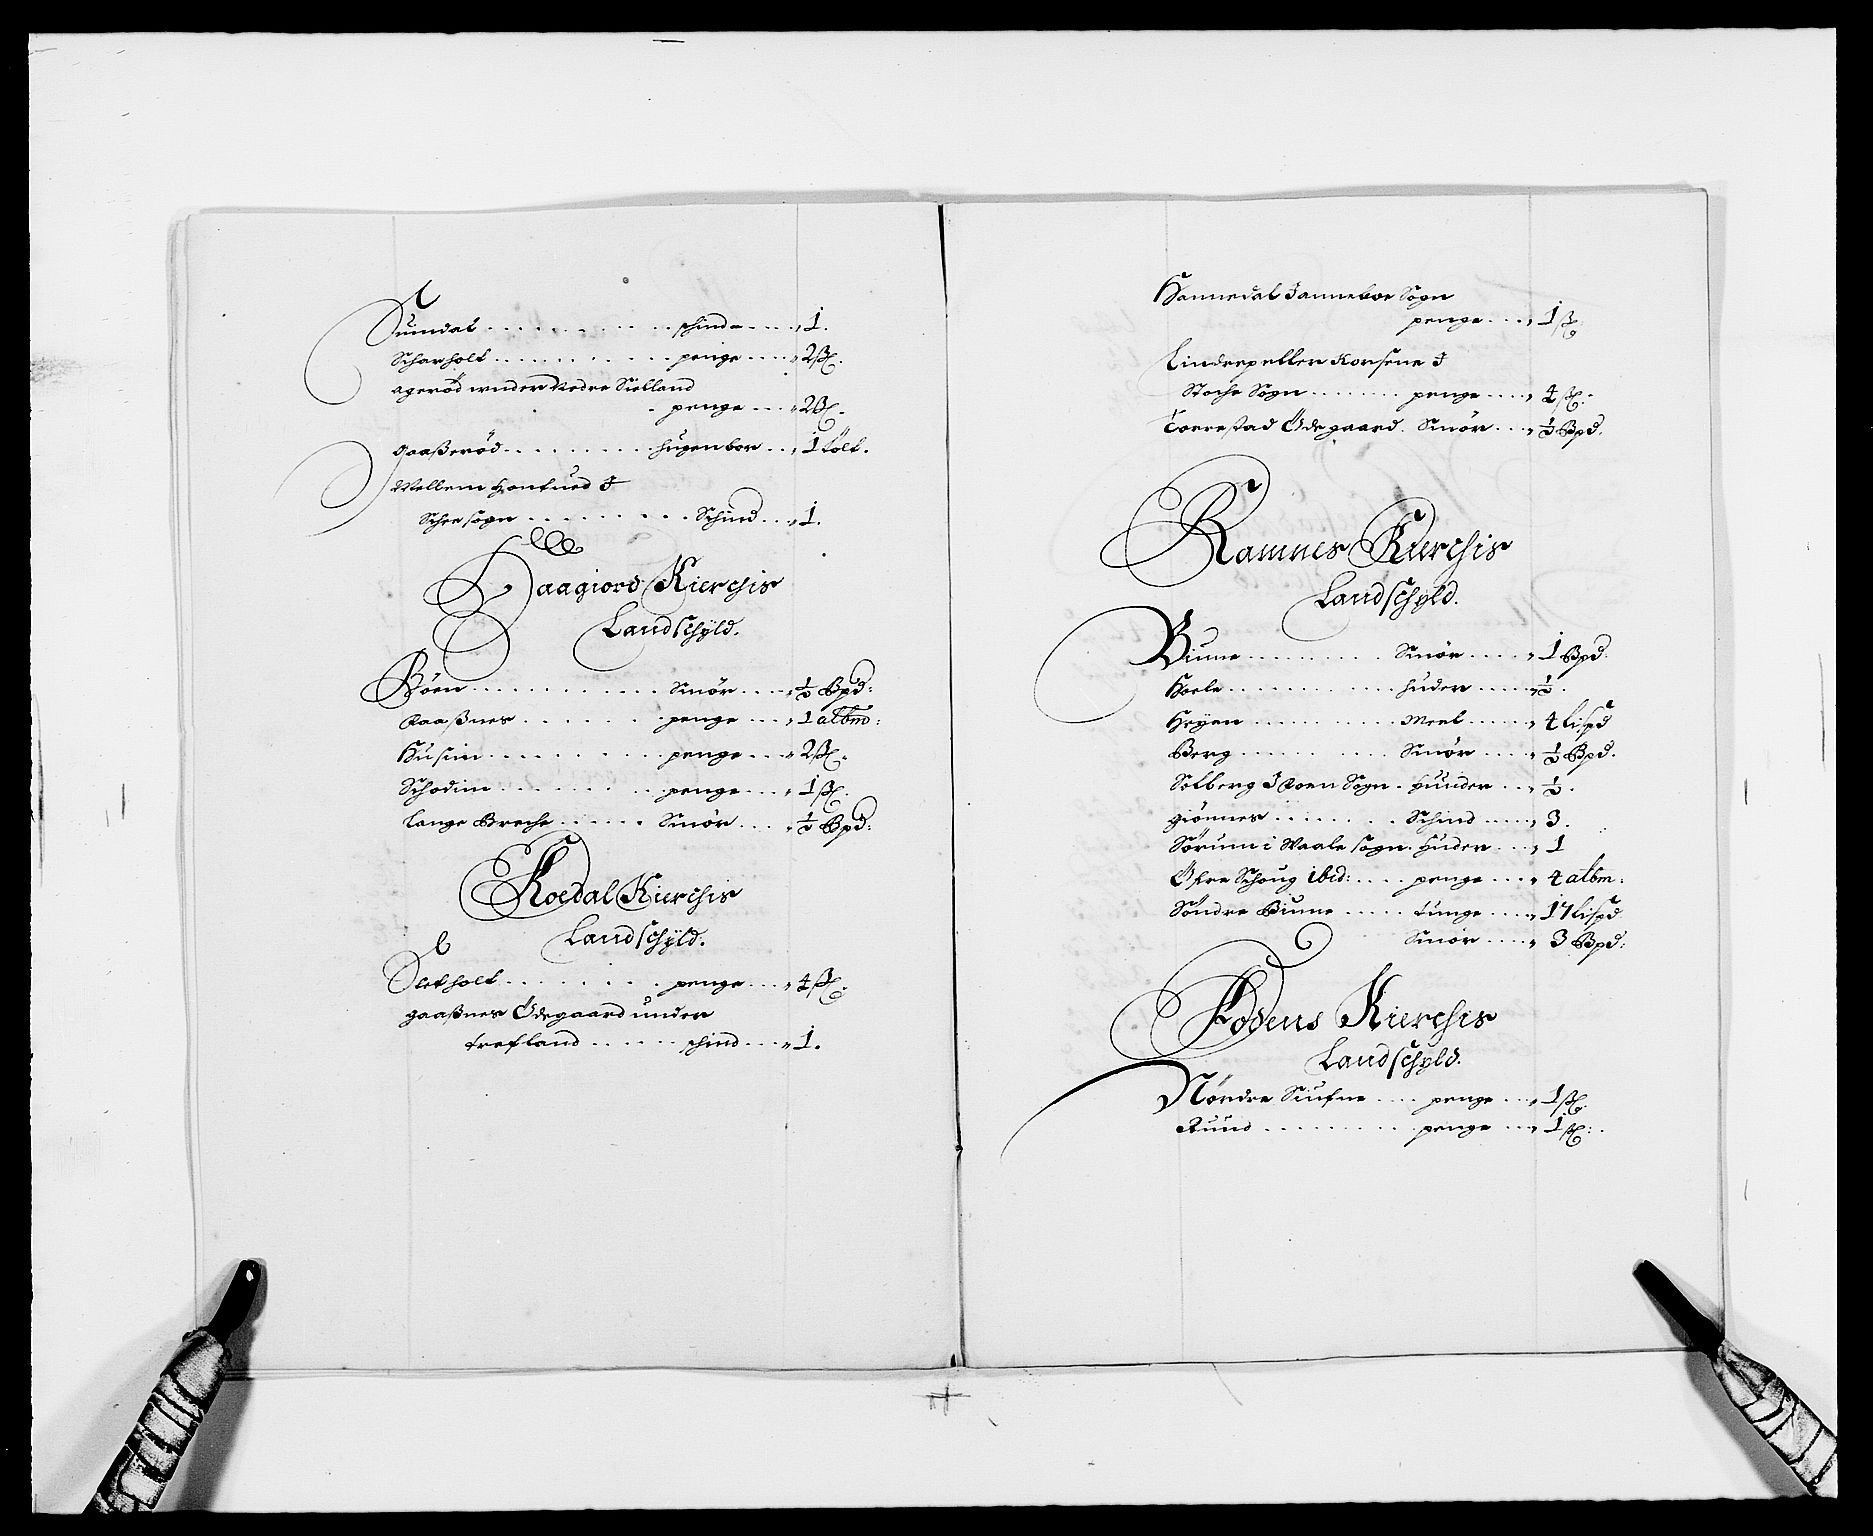 Sundal . . . . . . . . . . . schind . . . . 1.
Scharholt . . . . . . . . . . . penge . . . . 2 ß.
agerød wnder Nedre Sielland
penge . . . 2 ß.
gaaßerød . . . . . . . . hugenbor . . 1 tolt.
Mellem Hontued I
Schee sogn . . . . . . . . Schind . . . 1.
Haagiord Kierchis
Landschyld.
Böen . . . . . . . . . . . . Smör . . . ½ Bpd:
Raaßnes . . . . . . . penge . . . 1 albm:
Husum . . . . . . . . . penge . . . 2 ß.
Schodim . . . . . . . . penge . . . 1 ß.
Lange Breche . . . . . Smör . . . ½ Bpd:
Kodal Kierchis
Landschyld.
Sletholt . . . . . . . . penge . . . 4 ß.
gaaßnes Ödegaard under
trefland . . . . . schind . . . 1.
Hannedal Sanneboe Sogn
penge . . . 1 ß
Lindrepeller Korsene I
Stoche Sogn . . . . . . penge . . . 4 ß.
Torrestad Ödegaard. Smör . . . ½ Bpd.
Ramnes Kierchis
Landschyld.
Biune . . . . . . . . . Smör . . . . 1 Bpd.
Hoele . . . . . . . . . . . huder . . . . ½.
Heyen . . . . . . . . . . Meel . . . . 4 lispd
Berg . . . . . . . . . . Smör . . . . ½ Bpd.
Solberg I Roen Sogn. Hunder . . ½.
giönnes . . . . . . . . Schind . . . . 3.
Sörum i Waale sogn. Huder . . . 1
Öfre Schoug ibid: . . . . penge . . . 4 albm:
Söndre Biune . . . . . tunge . . . 17 lispd
Smör . . . . 3 Bpd:
Fodens Kierchis
Landschyld.
Nordre Siufne . . . . penge . . . 1 ß.
Ruud . . . . . . . . . . penge . . . 1 ß: